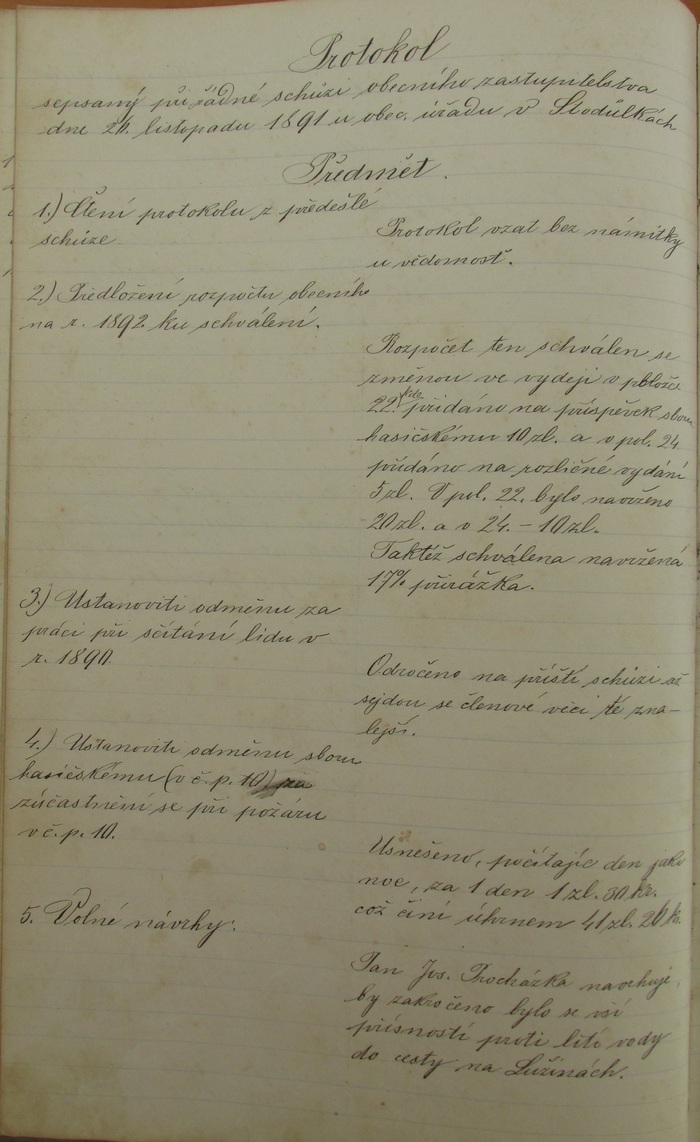 Protokol
sepsaný při řádné schůzi obecního zastupitelstva
dne 26. listopadu 1891 u obec. úřadu v Stodůlkách
Předmět.
1.) Čtení protokolu z předešlé
schůze
Protokol vzat bez námitky
u vědomost.
2.) Předložení rozpočtu obecního
na r. 1892 ku schválení.
Rozpočet ten schválen se
změnou ve vydeji v položce
22. kde přidáno na příspěvek sboru
hasičskému 10 zl. a v pol. 24
přidáno na rozličné vydání
5 zl. V pol. 22. bylo navrženo
20 zl. a v 24. – 10 zl.
Taktéž schválena navržená
17% přirážka.
3.) Ustanoviti odměnu za
práci při sčítání lidu v
r. 1890.
Odročeno na příští schůzi až
sejdou se členové věci té zna-
lejší.
4.) Ustanoviti odměnu sboru
hasičskému (v č. p. 10) za
zúčastnění se při požáru
v č. p. 10.
Usnešeno, počítajíc den jako
noc, za 1 den 1 zl. 30 kr.
což činí úhrnem 41 zl. 20 k.
5. Volné návrhy:
Pan Jos. Procházka navrhuje,
by zakročeno bylo se vší
přísností proti lití vody
do cesty na Lužinách.